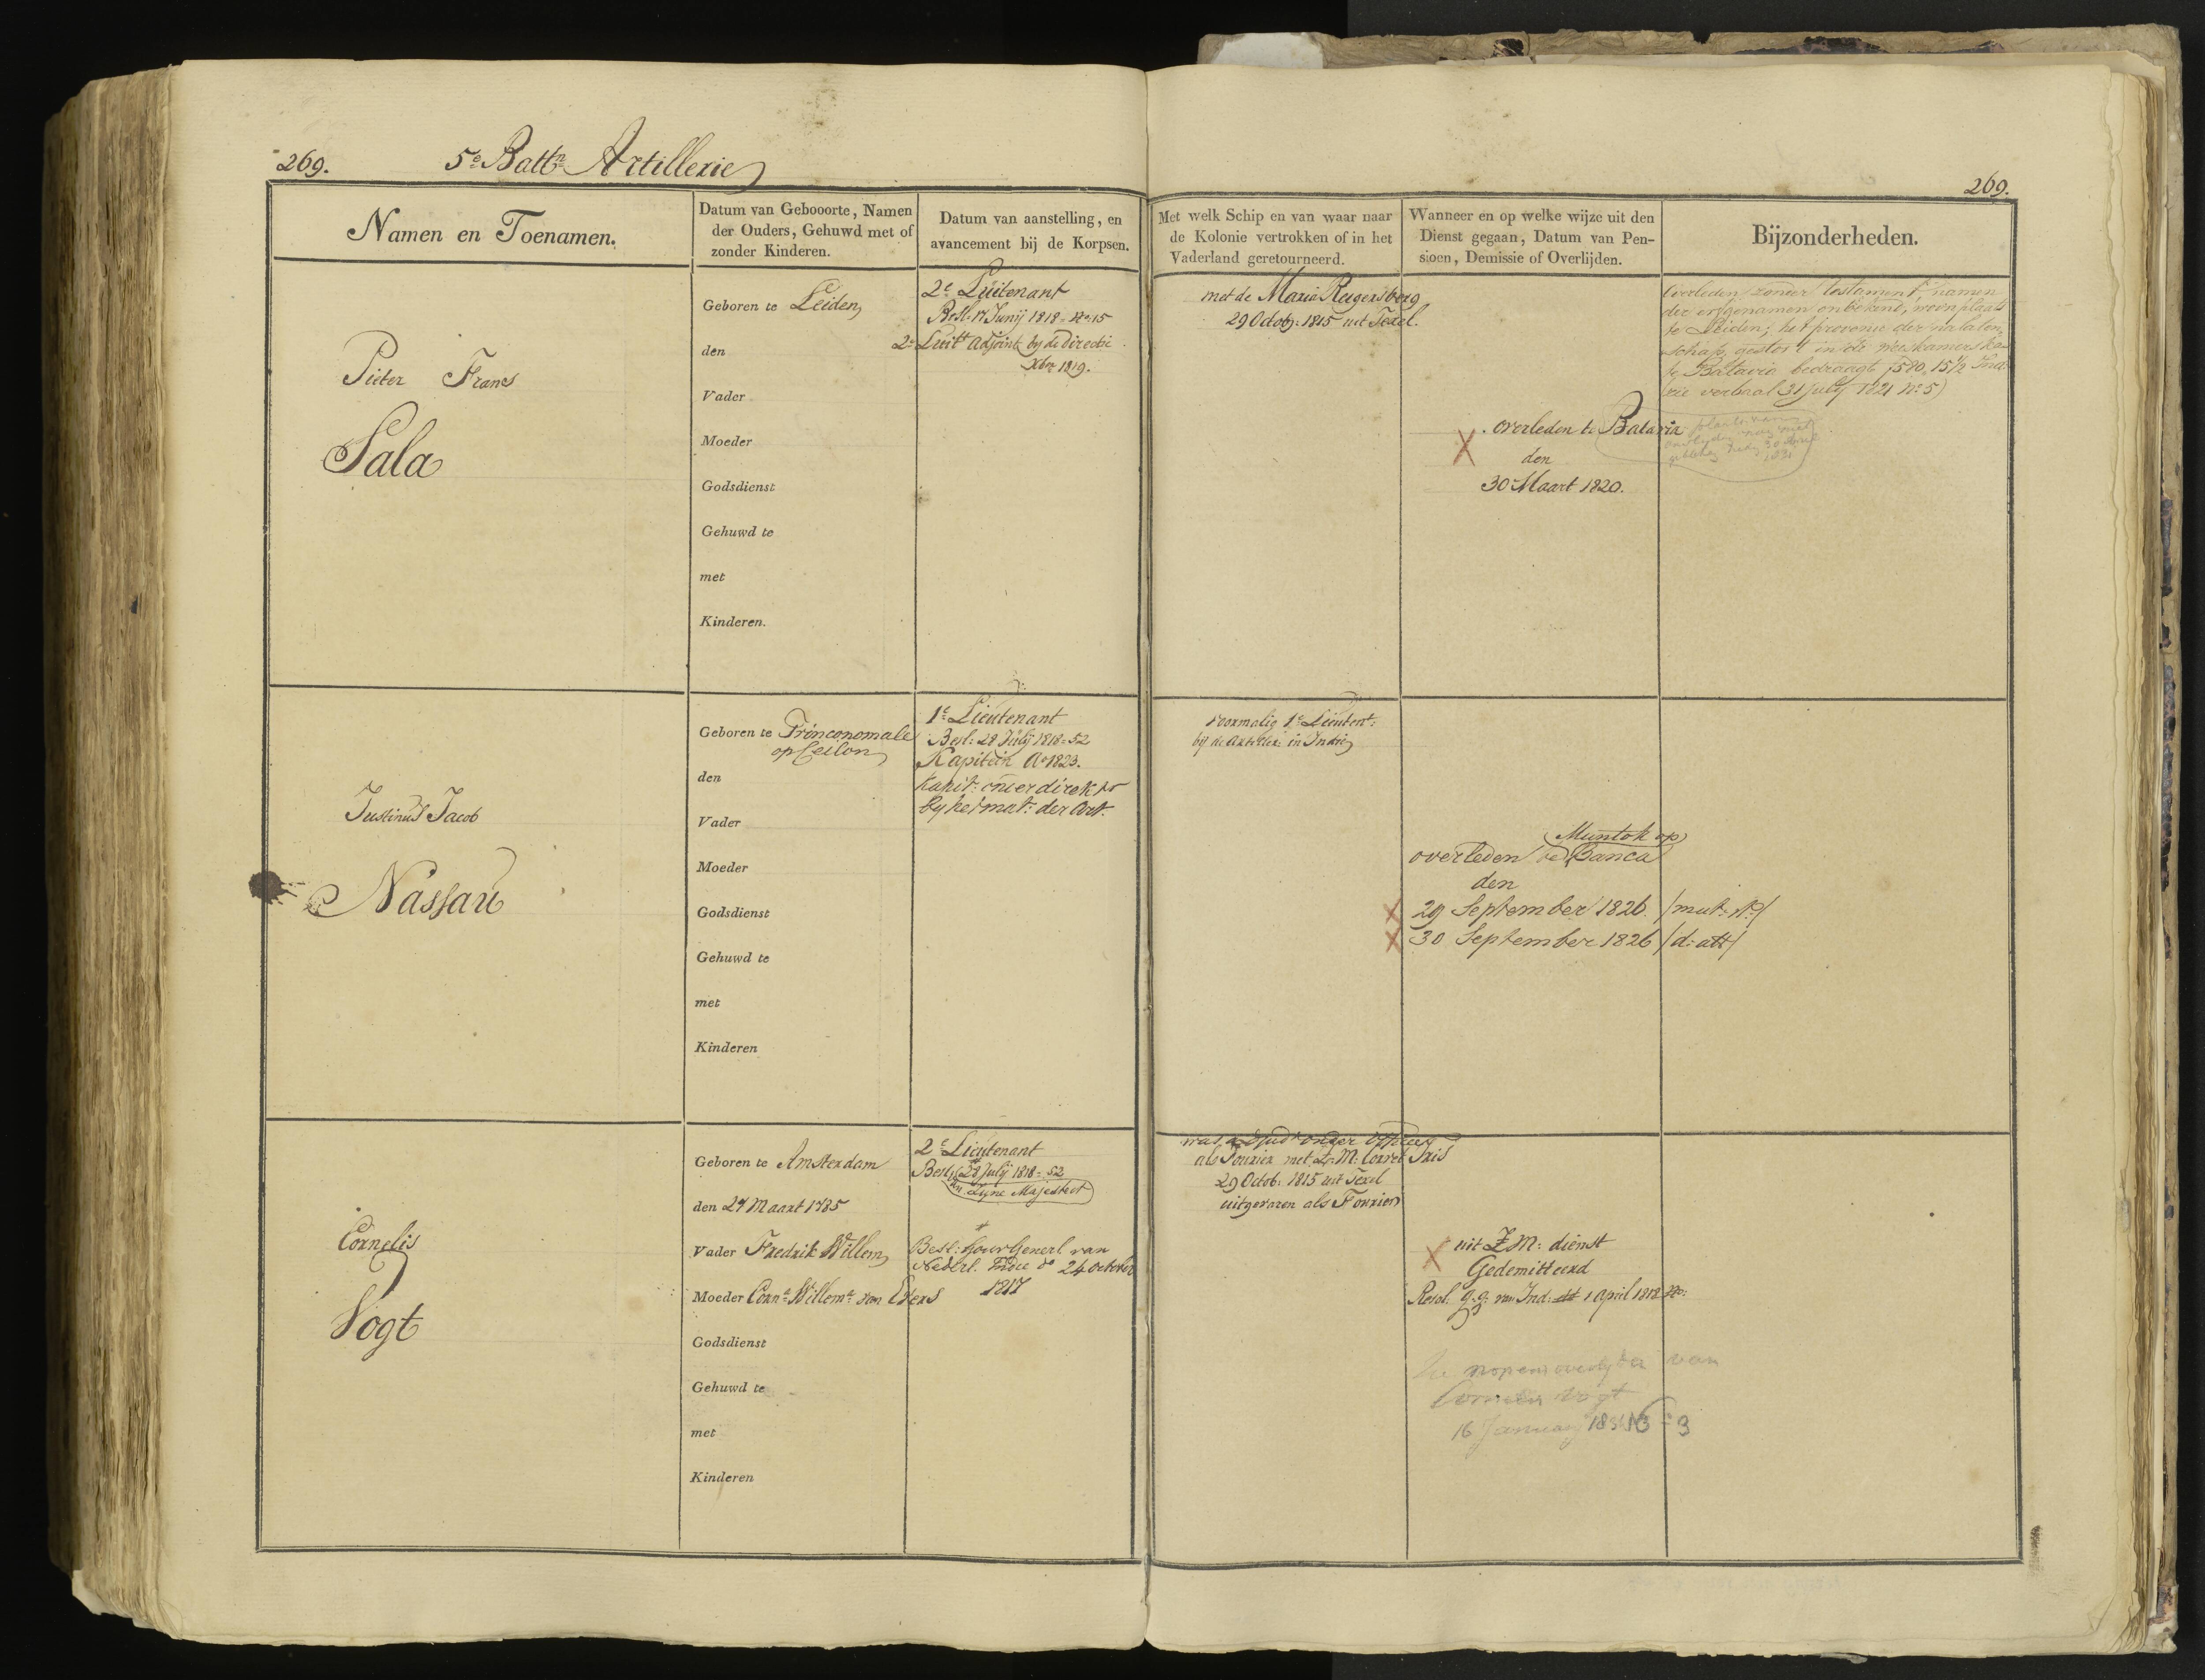 269.
5e Battn Artillerie
269.
Namen en Toenamen.
Datum van Gebooorte, Namen
der Ouders, Gehuwd met of
zonder Kinderen.
Datum van aanstelling, en
avancement bij de Korpsen.
Met welk Schip en van waar naar
de Kolonie vertrokken of in het
Vaderland geretourneerd.
Wanneer en op welke wijze uit den
Dienst gegaan, Datum van Pen-
sioen, Demissie of Overlijden.
Bijzonderheden.
Pieter Frans
Sala
Geboren te Leiden
den
Vader
Moeder
Godsdienst
Gehuwd te
met
Kinderen.
2e Luitenant
Besl. 17 Junij 1818 No 15
2e Luitt Adjoint by de Directie
Xbr 1819.
met de Maria Reigersberg
29 Octob: 1815 uit Texel.
. overleden te Batavia
den
30 Maart 1820.
Overleden zonder testament namen
der erfgenamen onbekend, woonplaats
te Leiden; het provenue der nalaten-
schap gestort in de weeskamers ka-
te Batavia bedraagt f 580. 15 1/2 Ind:
(zie verbaal 31 July 1821 No 5)
Justinus Jacob
Nassau
Geboren te Trinconomale
op Ceilon
den
Vader
Moeder
Godsdienst
Gehuwd te
met
Kinderen
1e Lieutenant
Besl: 28 Julij 1818 = 52
Kapitein Ao 1823.
Kapit: onderdirektr
by het mat: der Art.
voormalig 1e Lieutent:
bij de Artillerie in Indie
Muntok op
overleden te Banca
den
29 September 1826. /mut: st:/
30 September 1826 /d: att/
Cornelis
Vogt
Geboren te Amsterdam
den 27 Maart 1785
Vader Fredrik Willem
Moeder Corna Willema van Evers
Godsdienst
Gehuwd te
met
Kinderen
2e Lieutenant
Besl: 28 July 1818 = 52
van Zyne Majesteit
Besl: Gouv Generl van
Nederl. Indie do 24 October
1817
was Adjudt onder Officier
als Fourier met Zr: M: Corvet Iris
29 Octob: 1815 uit Texel
uitgevaren als Fourier
uit Z M: dienst
Gedemitteerd
Resol. g.g. van Ind: 1 April 1818 No:
van
Cornelis Vogt
16 January